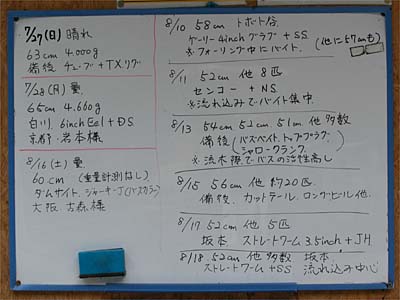 7/27(日) 晴れ
63cm 4.000g
備後 チューブ+TXリグ
7/28(月) 曇
65cm 4.660g
白川 6inch Eel+DS
京都・岩本様
8/16(土) 曇
60cm (重量計測なし)
ダムサイト ジャーキーJ(バスカラー)
大阪 古森様
8/10 58cm トボトチ谷
ゲーリー4inchグラブ+SS (他に57cmも)
※フォーリング中にバイト。
8/11 52cm 他8匹
センコー+NS
※流れ込みでバイト集中
8/13 54cm 52cm 51cm 他多数
備後 (バズベイト,トッププラグ
シャロークランク
※流木際でバスの活性高し
8/15 56cm 他約20匹
備後 カットテール ロングビル他
8/17 52cm 他5匹
坂本 ストレートワーム3.5inch+JH
8/18 52cm 他多数 坂本
ストレートワーム+SS 流れ込み中心